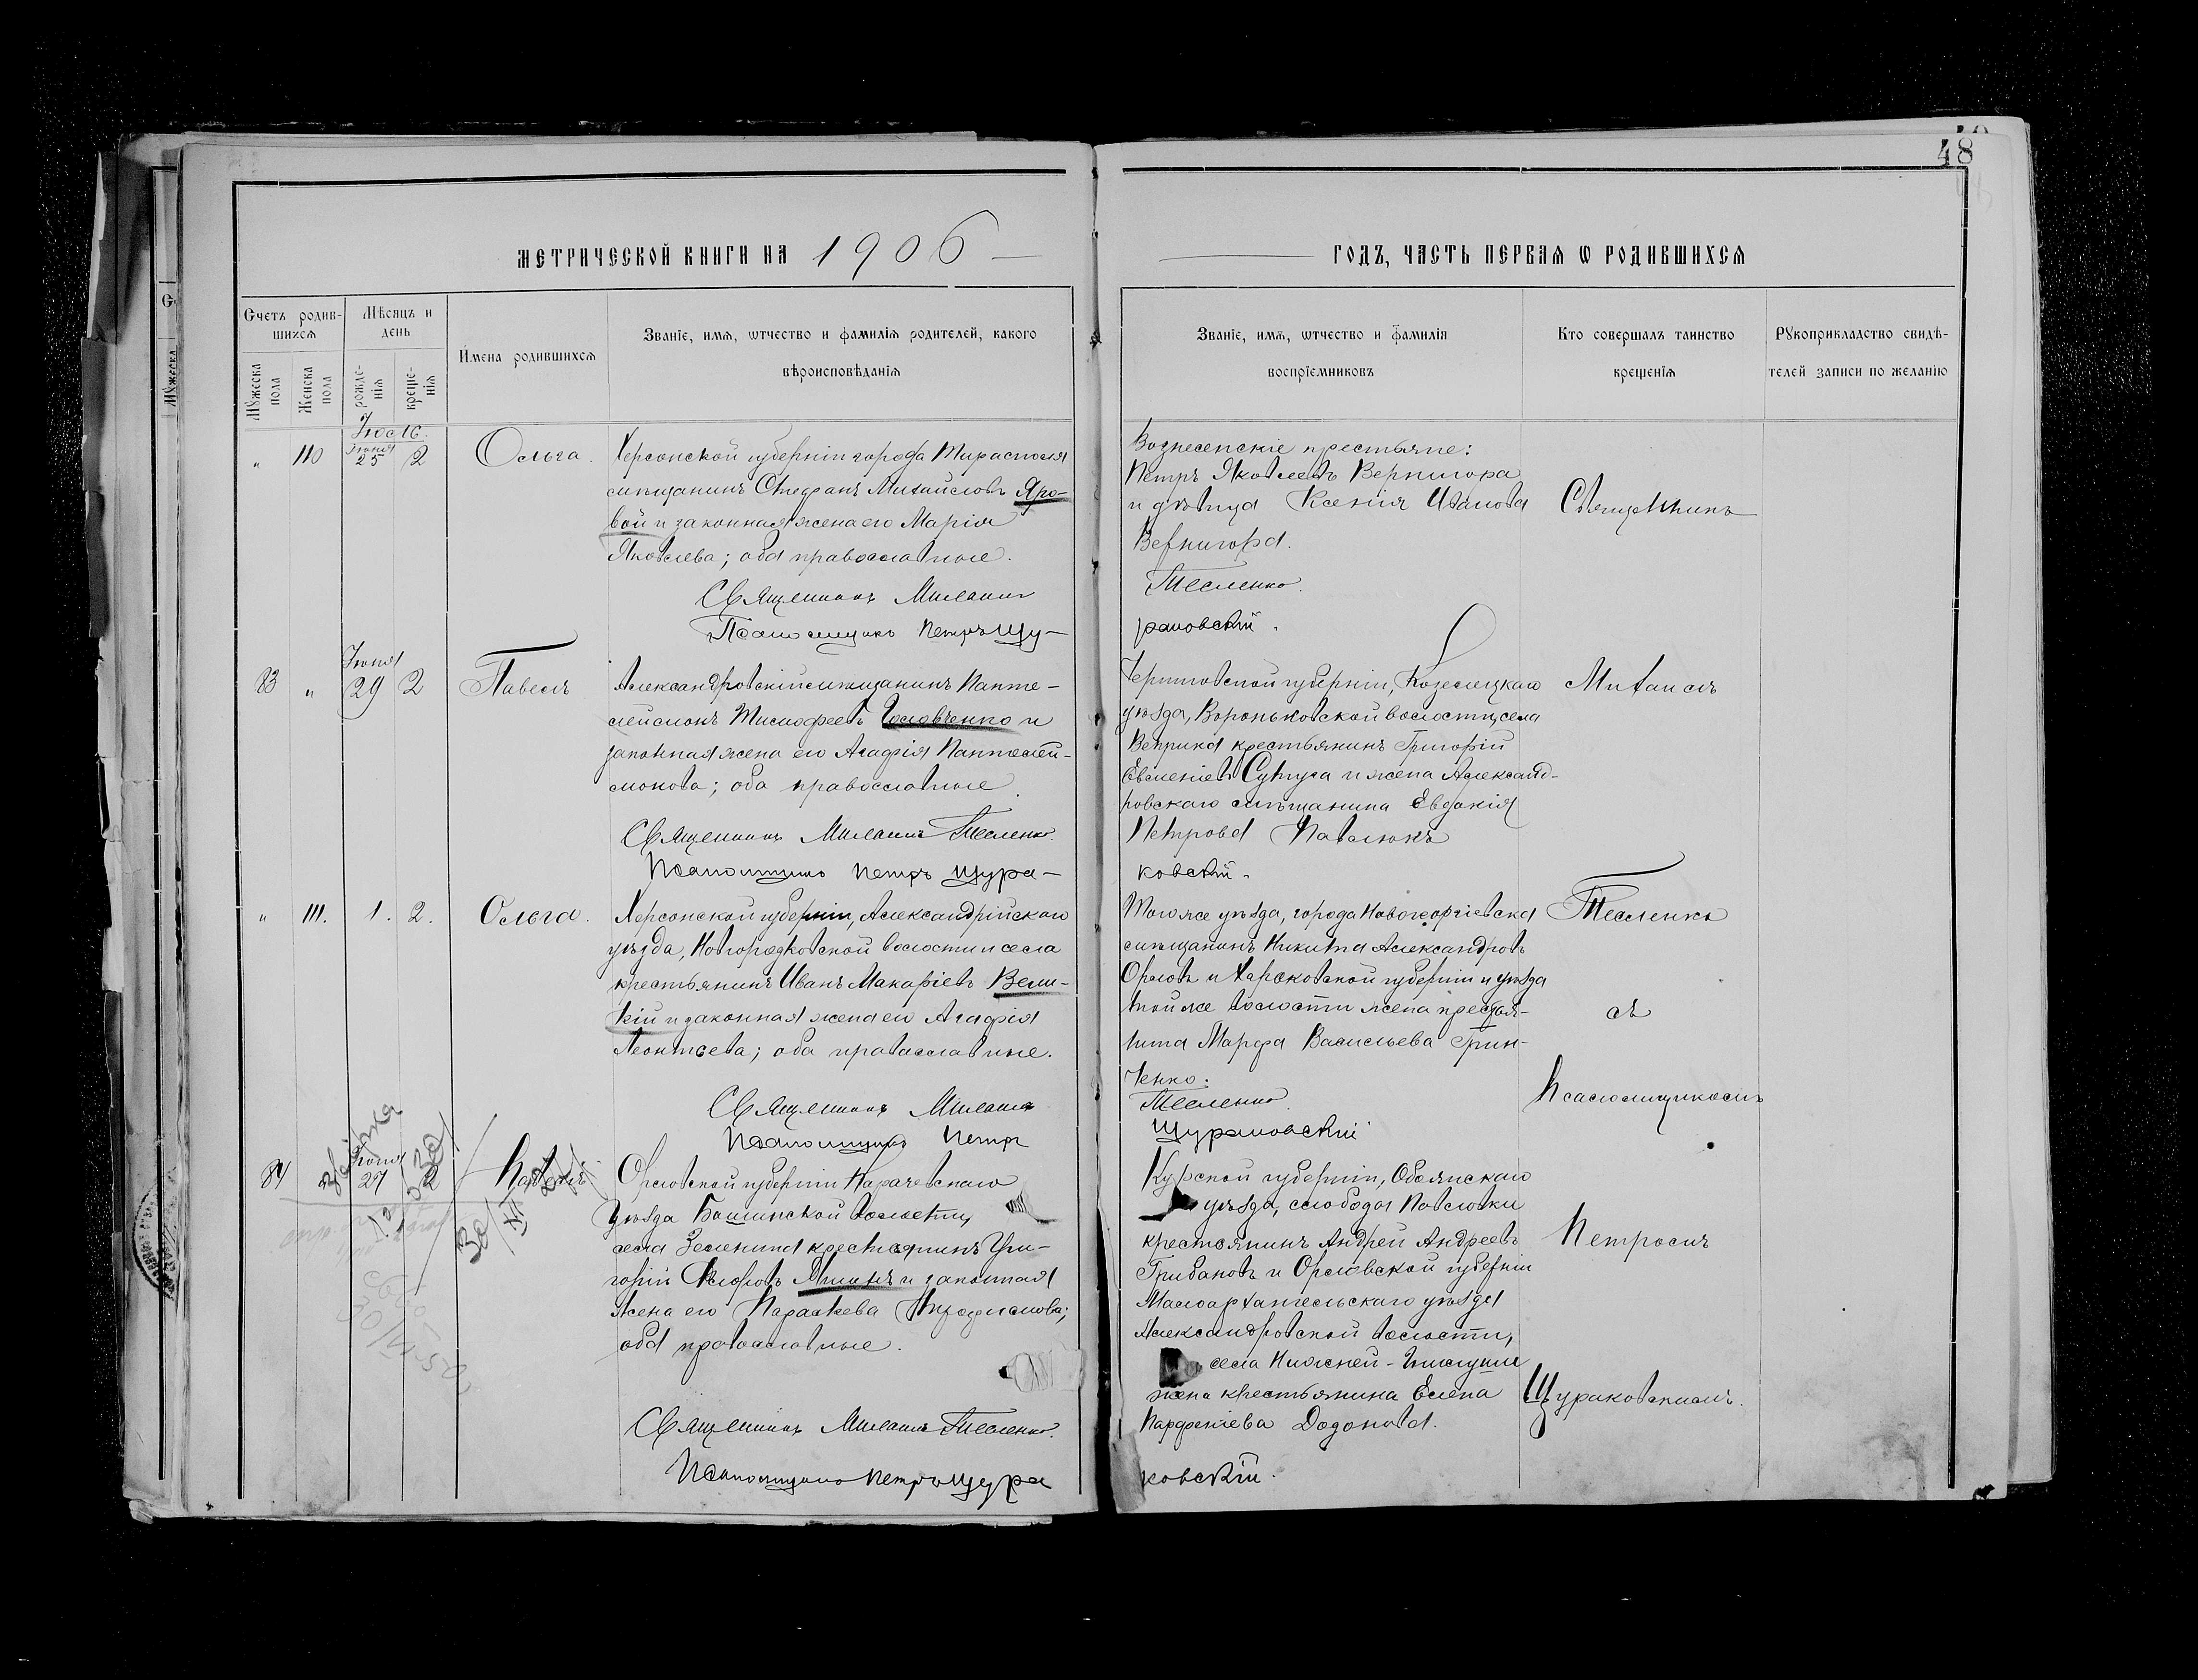 48
МЕТРИЧЕСКОЙ КНИГИ НА 1906
ГОДЪ, ЧАСТЬ ПЕРВАЯ Ѡ РОДИВШИХСЯ
Счетъ родившихся
Мѣсяцъ и день
Имена родившихся
Званіе, имя, ѡтчество и фамилія родителей, какого
вѣроисповѣданія
Мужеска пола
Женска пола
рожденія
крещенія
Званіе, имя, ѡтчество и фамилія
воспріемниковъ
Кто совершалъ таинство
крещенія
Рукоприкладство свидѣтелей записи по желанію
" 110 Іюня 25 2 Ольга
Херсонской губерніи города Тирасполя
мѣщанинъ Стефанъ Михайловъ Яро-
вой и законная жена его Марія
Яковлева; оба православные.
Священникъ
Псаломщикъ Петръ Щу-
Вознесенскіе крестьяне:
Петръ Яковлевъ Вернигора
и дѣвица Ксенія Иванова
Вернигора.
Тесленко.
раковскій.
Священникъ
83 " Іюня 29 2 Павелъ
Александровскій мѣщанинъ Панте-
леймонъ Тимофеевъ Головченко и
законная жена его Агафія Пантелей-
монова; оба православные.
Священникъ Тесленко.
Псаломщикъ Петръ Щура-
Черниговской губерніи, Козелецкаго
уѣзда, Вороньковской волости, села
крестьянинъ Григорій
и жена Александ-
ровскаго мѣщанина Евдокія
Петрова Павлюкъ
ковскій.
Михаилъ
" 111. 1. 2. Ольга.
Херсонской губерніи, Александрійскаго
уѣзда, Новгородковской волости и села
крестьянинъ Иванъ Макаріевъ Вели-
кій и законная жена его Агафія
Леонтьева; оба православные.
Священникъ
Псаломщикъ Петръ
Того же уѣзда, города Новогеоргіевска
мѣщанинъ Никита Александровъ
Орловъ и Харьковской губерніи и уѣзда
той же волости жена крестья-
нина Марфа Васильева Грин-
ченко.
Тесленко.
Щураковскій
Тесленко
съ
Псаломщикомъ
84 Іюня 27 2 Павелъ
Орловской губерніи Карачевскаго
уѣзда волости,
села крестьянинъ Гри-
горій и законная
жена его Параскева
оба православные.
Священникъ Тесленко.
Псаломщикъ Петръ Щура
Курской губерніи, Обоянскаго
уѣзда, слободы Павловки
крестьянинъ Андрей Андреевъ
Грибановъ и Орловской губерніи
Малоархангельскаго уѣзда
Александровской волости,
села Нижней-
жена крестьянина Елена
Парфеніева Додонова.
ковскій.
Петромъ
Щураковскимъ.